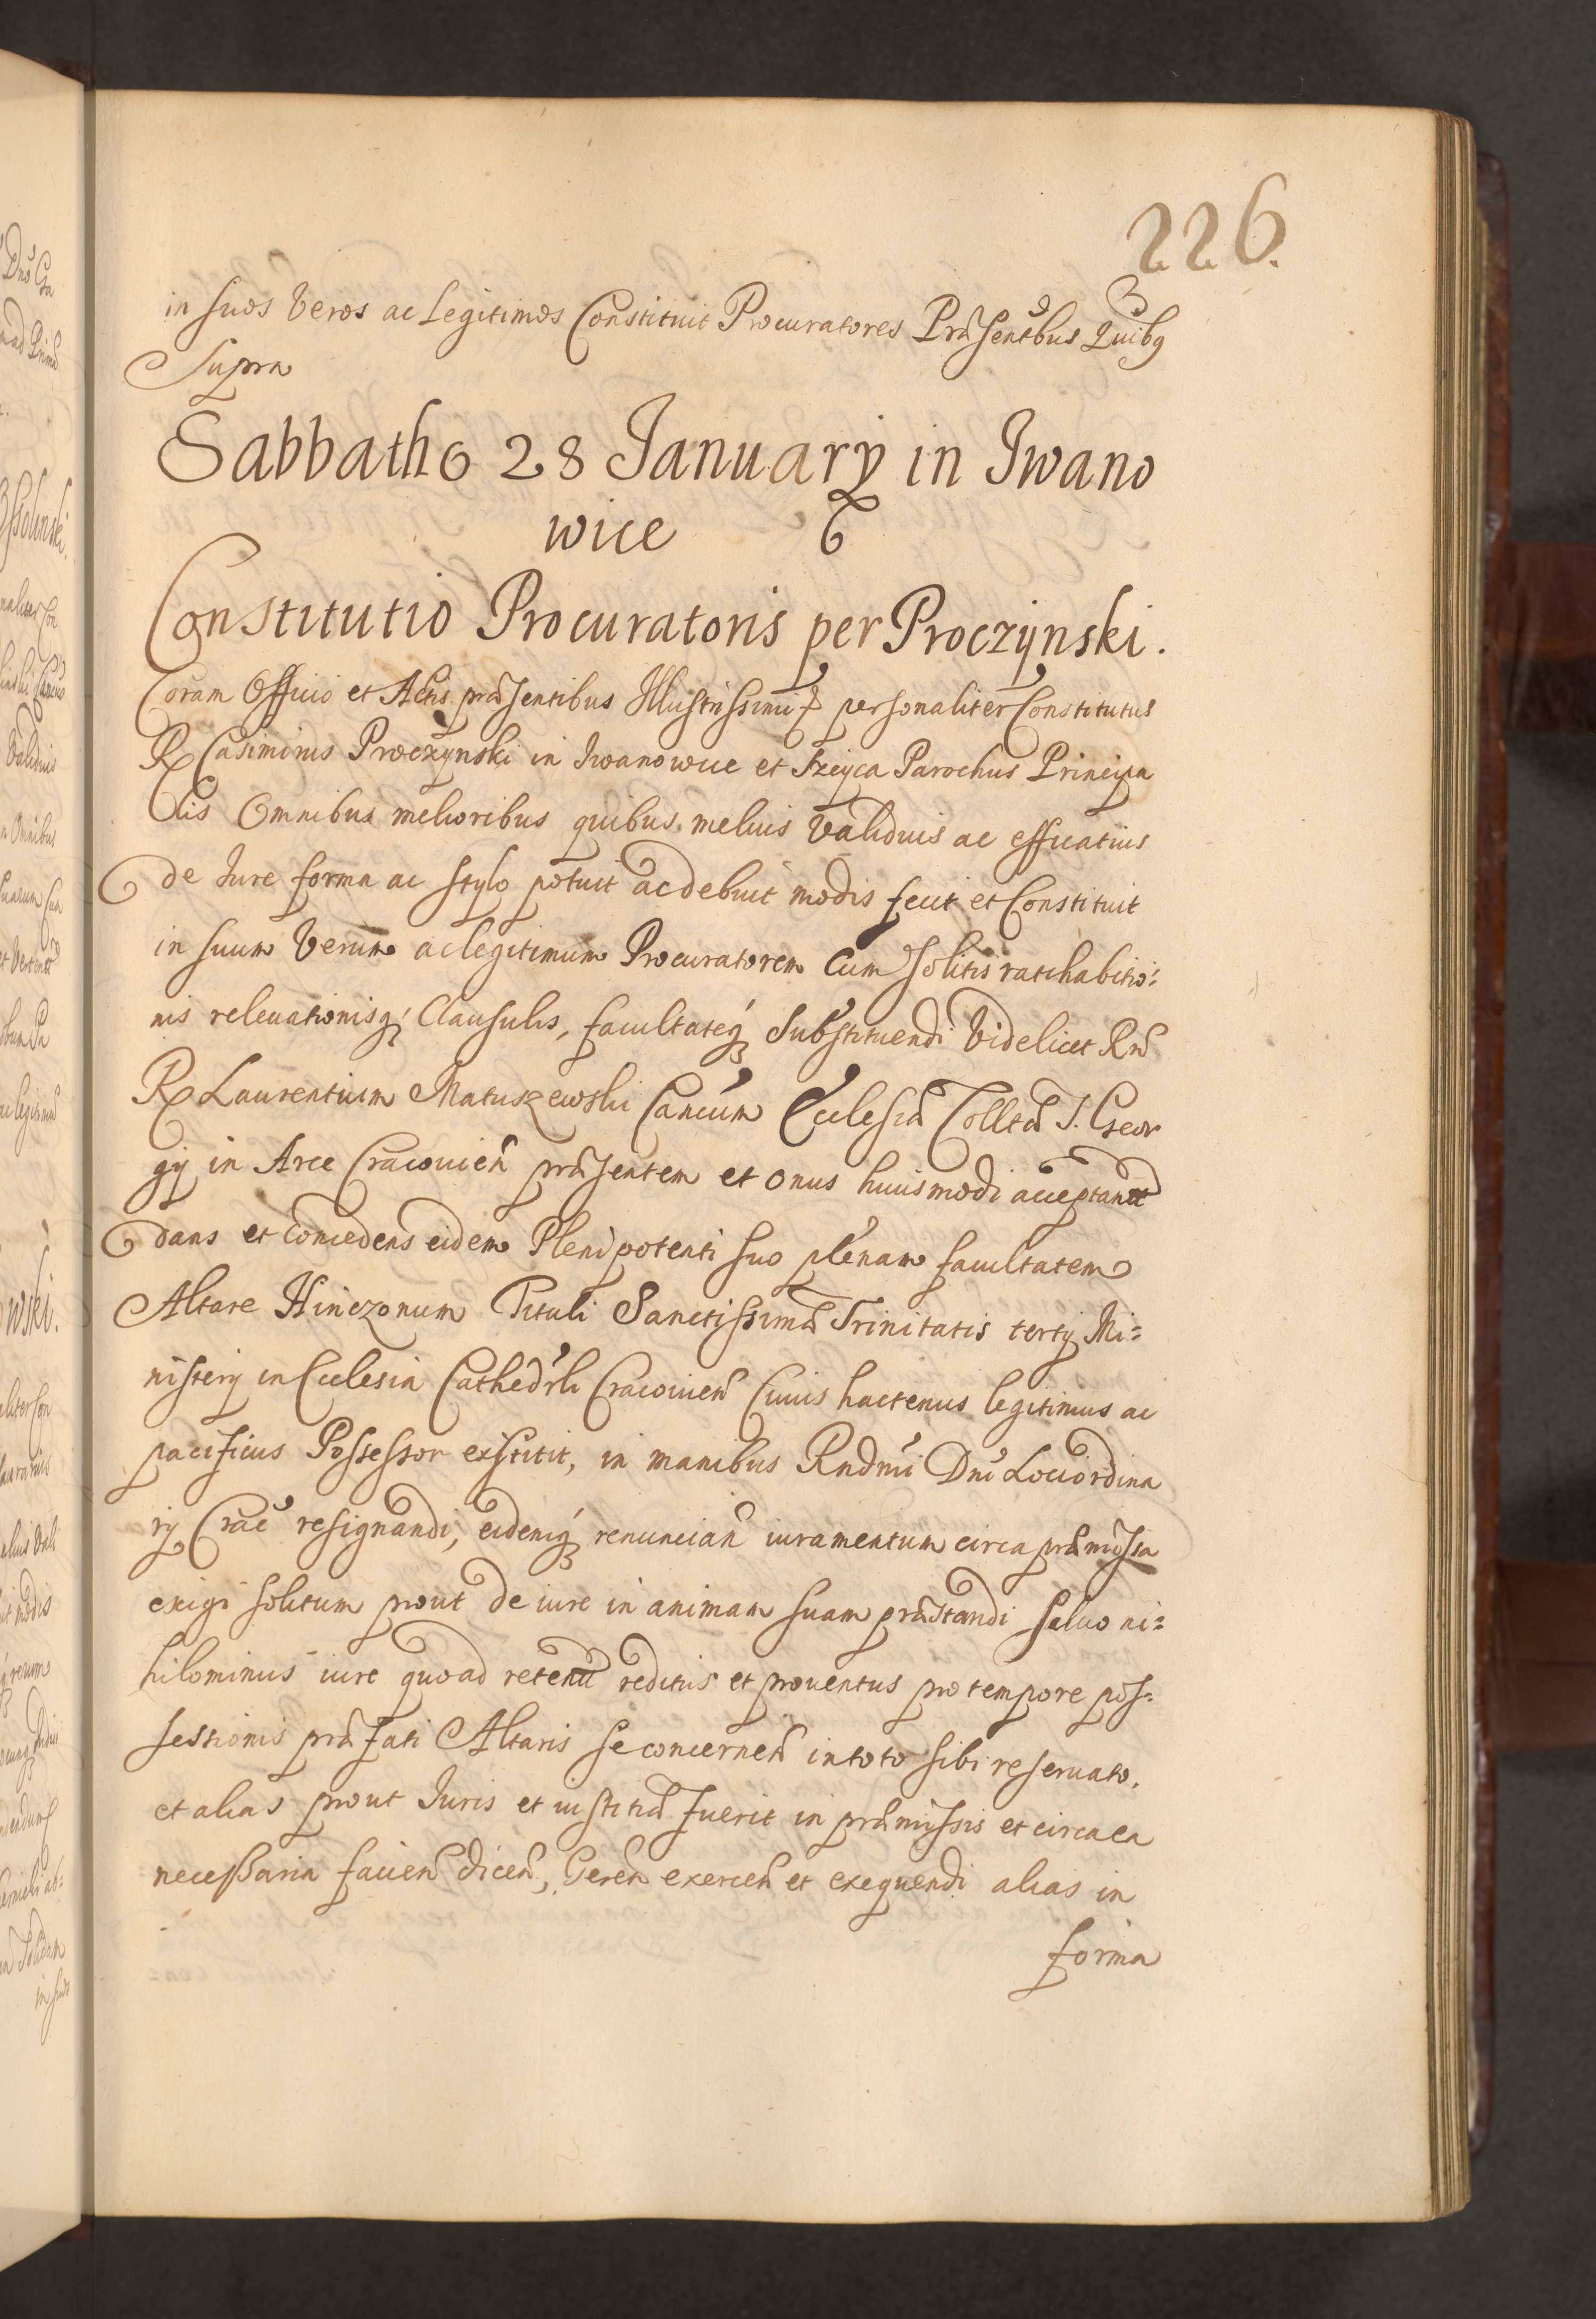 226.
in suos veros ac Legitimos Constituit Procuratores Præsentbus Quibq
Supra
Sabbatho 28 January in Iwano
wice
Constitutio Procuratoris per Proczynski.
Coram Officio et Actis præsentibus Illustrissimi personaliter Constitutus
R Casimirus Proczynski in Iwanowice et Szeyca Parochus Principa
lis Omnibus melioribus quibus melius validius ac efficatius
de Iure forma ac stylo potuit ac debuit modis fecit et Constituit
in suum verum ac legitimum Procuratorem Cum solitis ratihabitio:
nis relevationisq; Clausulis, facultateq; Substituendi Videlicet Rnd
R Laurentium Matuszewski Cancum Ecclesiæ Colltæ S. Geor
gij in Arce Cracovien præsentem et onus huiusmodi acceptantt
dans et concedens eidem Plenipotenti suo plenam facultatem
Altare Hinczonum Tituli Sanctissimæ Trinitatis tertij Mi=
nisterij in Ecclesia Cathedrli Cracovien Cuius hactenus legitimus ac
pacificus Possessor exstitit, in manibus Rndmi Dni Lociordina
rij Crac resignandi, eidemq; renuncian iuramentum circa præmissa
exigi solitum prout de iure in animam suam præstandi salvo ni=
hilominus iure quoad retenti reditus et proventus pro tempore pos=
sessionis præfati Altaris se concernen in toto sibi reservato.
et alias prout Iuris et iustitiæ fuerit in præmissis et circa ea
necessaria facien dicen, Geren exercen et exequendi alias in
forma